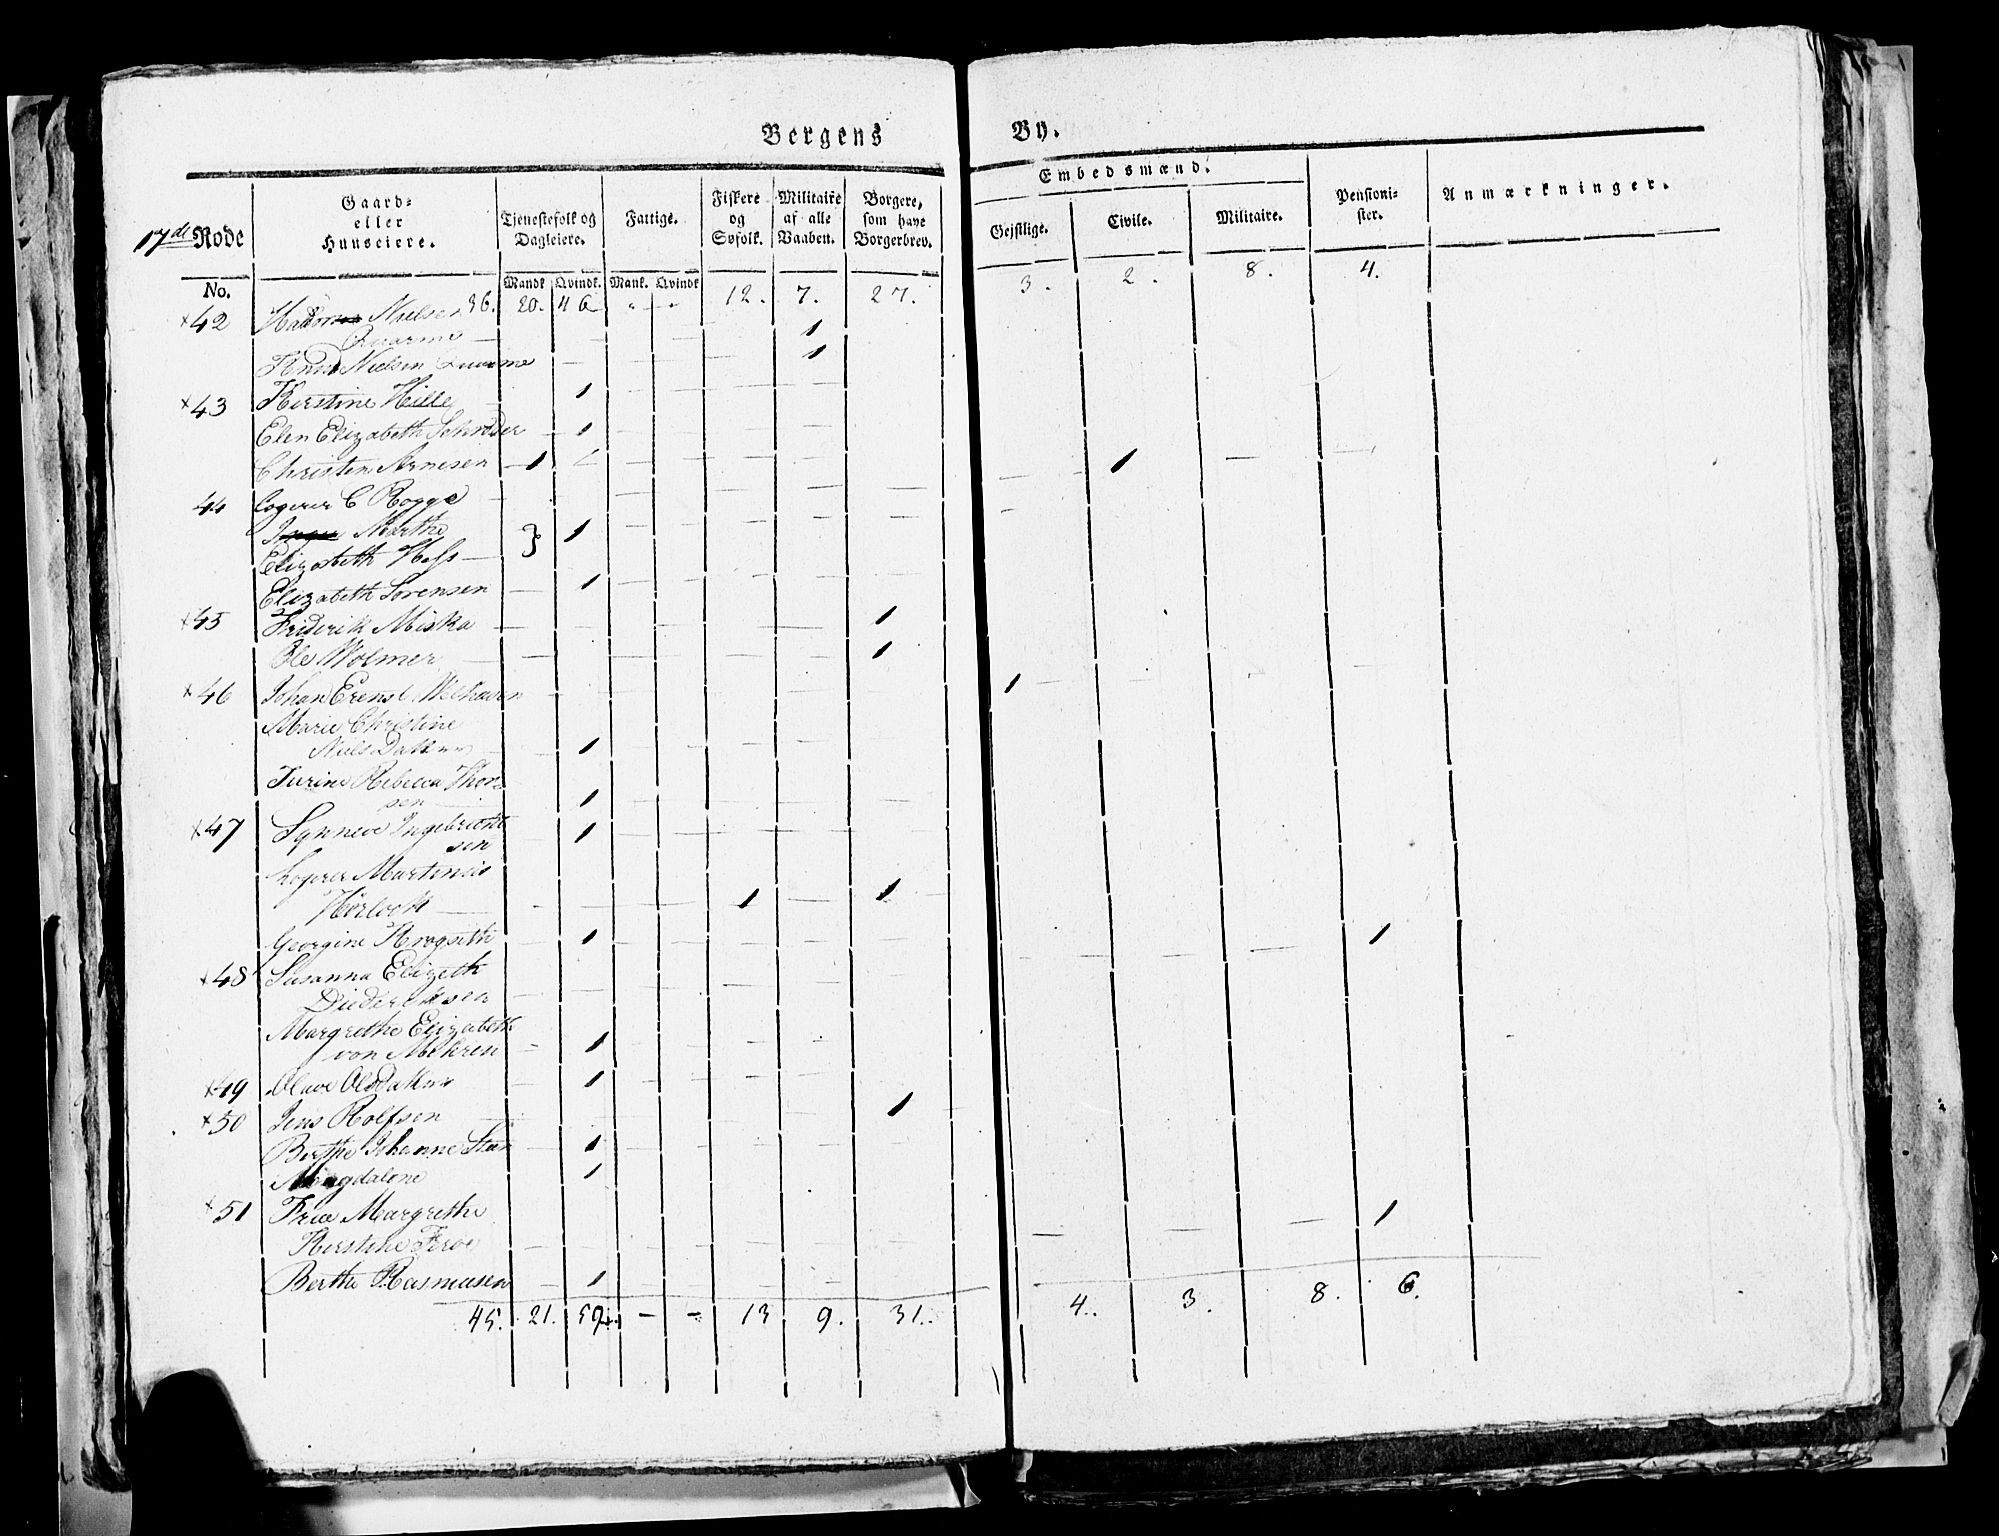 Bergens By.
17de Rode
No.
Gaard-
eller
Huuseiere.
Tjenestefolk og
Dagleiere.
Fattige.
Fiskere
og
Søfolk.
Militaire
af alle
Vaaben.
Borgere,
som have
Borgerbrev.
Embedsmænd.
Gejstlige. Civile. Militaire.
Pensioni-
ster.
Anmærkninger.
Mandk Qvindk. Mank. Qvindk
36. 20. 46 " " 12. 7. 27. 3. 2. 8. 4.
×42 Nielsen
Quarme — 1
Knud Nielsen Quarme 1
×43 Kirstine Hille 1
Elen Elizabeth Schrøder 1
Christen Arnesen 1 1
44 Logerer C Rogge
Marthe } 1
Elizabeth Hess
Elizabeth Sørensen 1
×45 Friderik Miska 1
Ole Wolmer 1
×46 Johan Ernst Welhaven 1
Marie Christine
Niels Datter 1
Jurine Rebecca Thor
sen 1
×47 Synneve Ingebricht
sen 1
Logerer Martinus
Hørlock 1 1
Georgine Krogseth 1 1
×48 Susanna Elizeth
Diederiksen
Margrethe Elizabeth
von Mehren 1
×49 Olave Olsdatter 1
×50 Jens Rolfsen 1
Berthe Johanne Steen 1
Magdalene 1
×51 Frue Margrethe
Kirstine Feroe 1
Berthe Rasmusen 1
45. 21. 59. – – 13 9. 31. 4. 3. 8. 6.